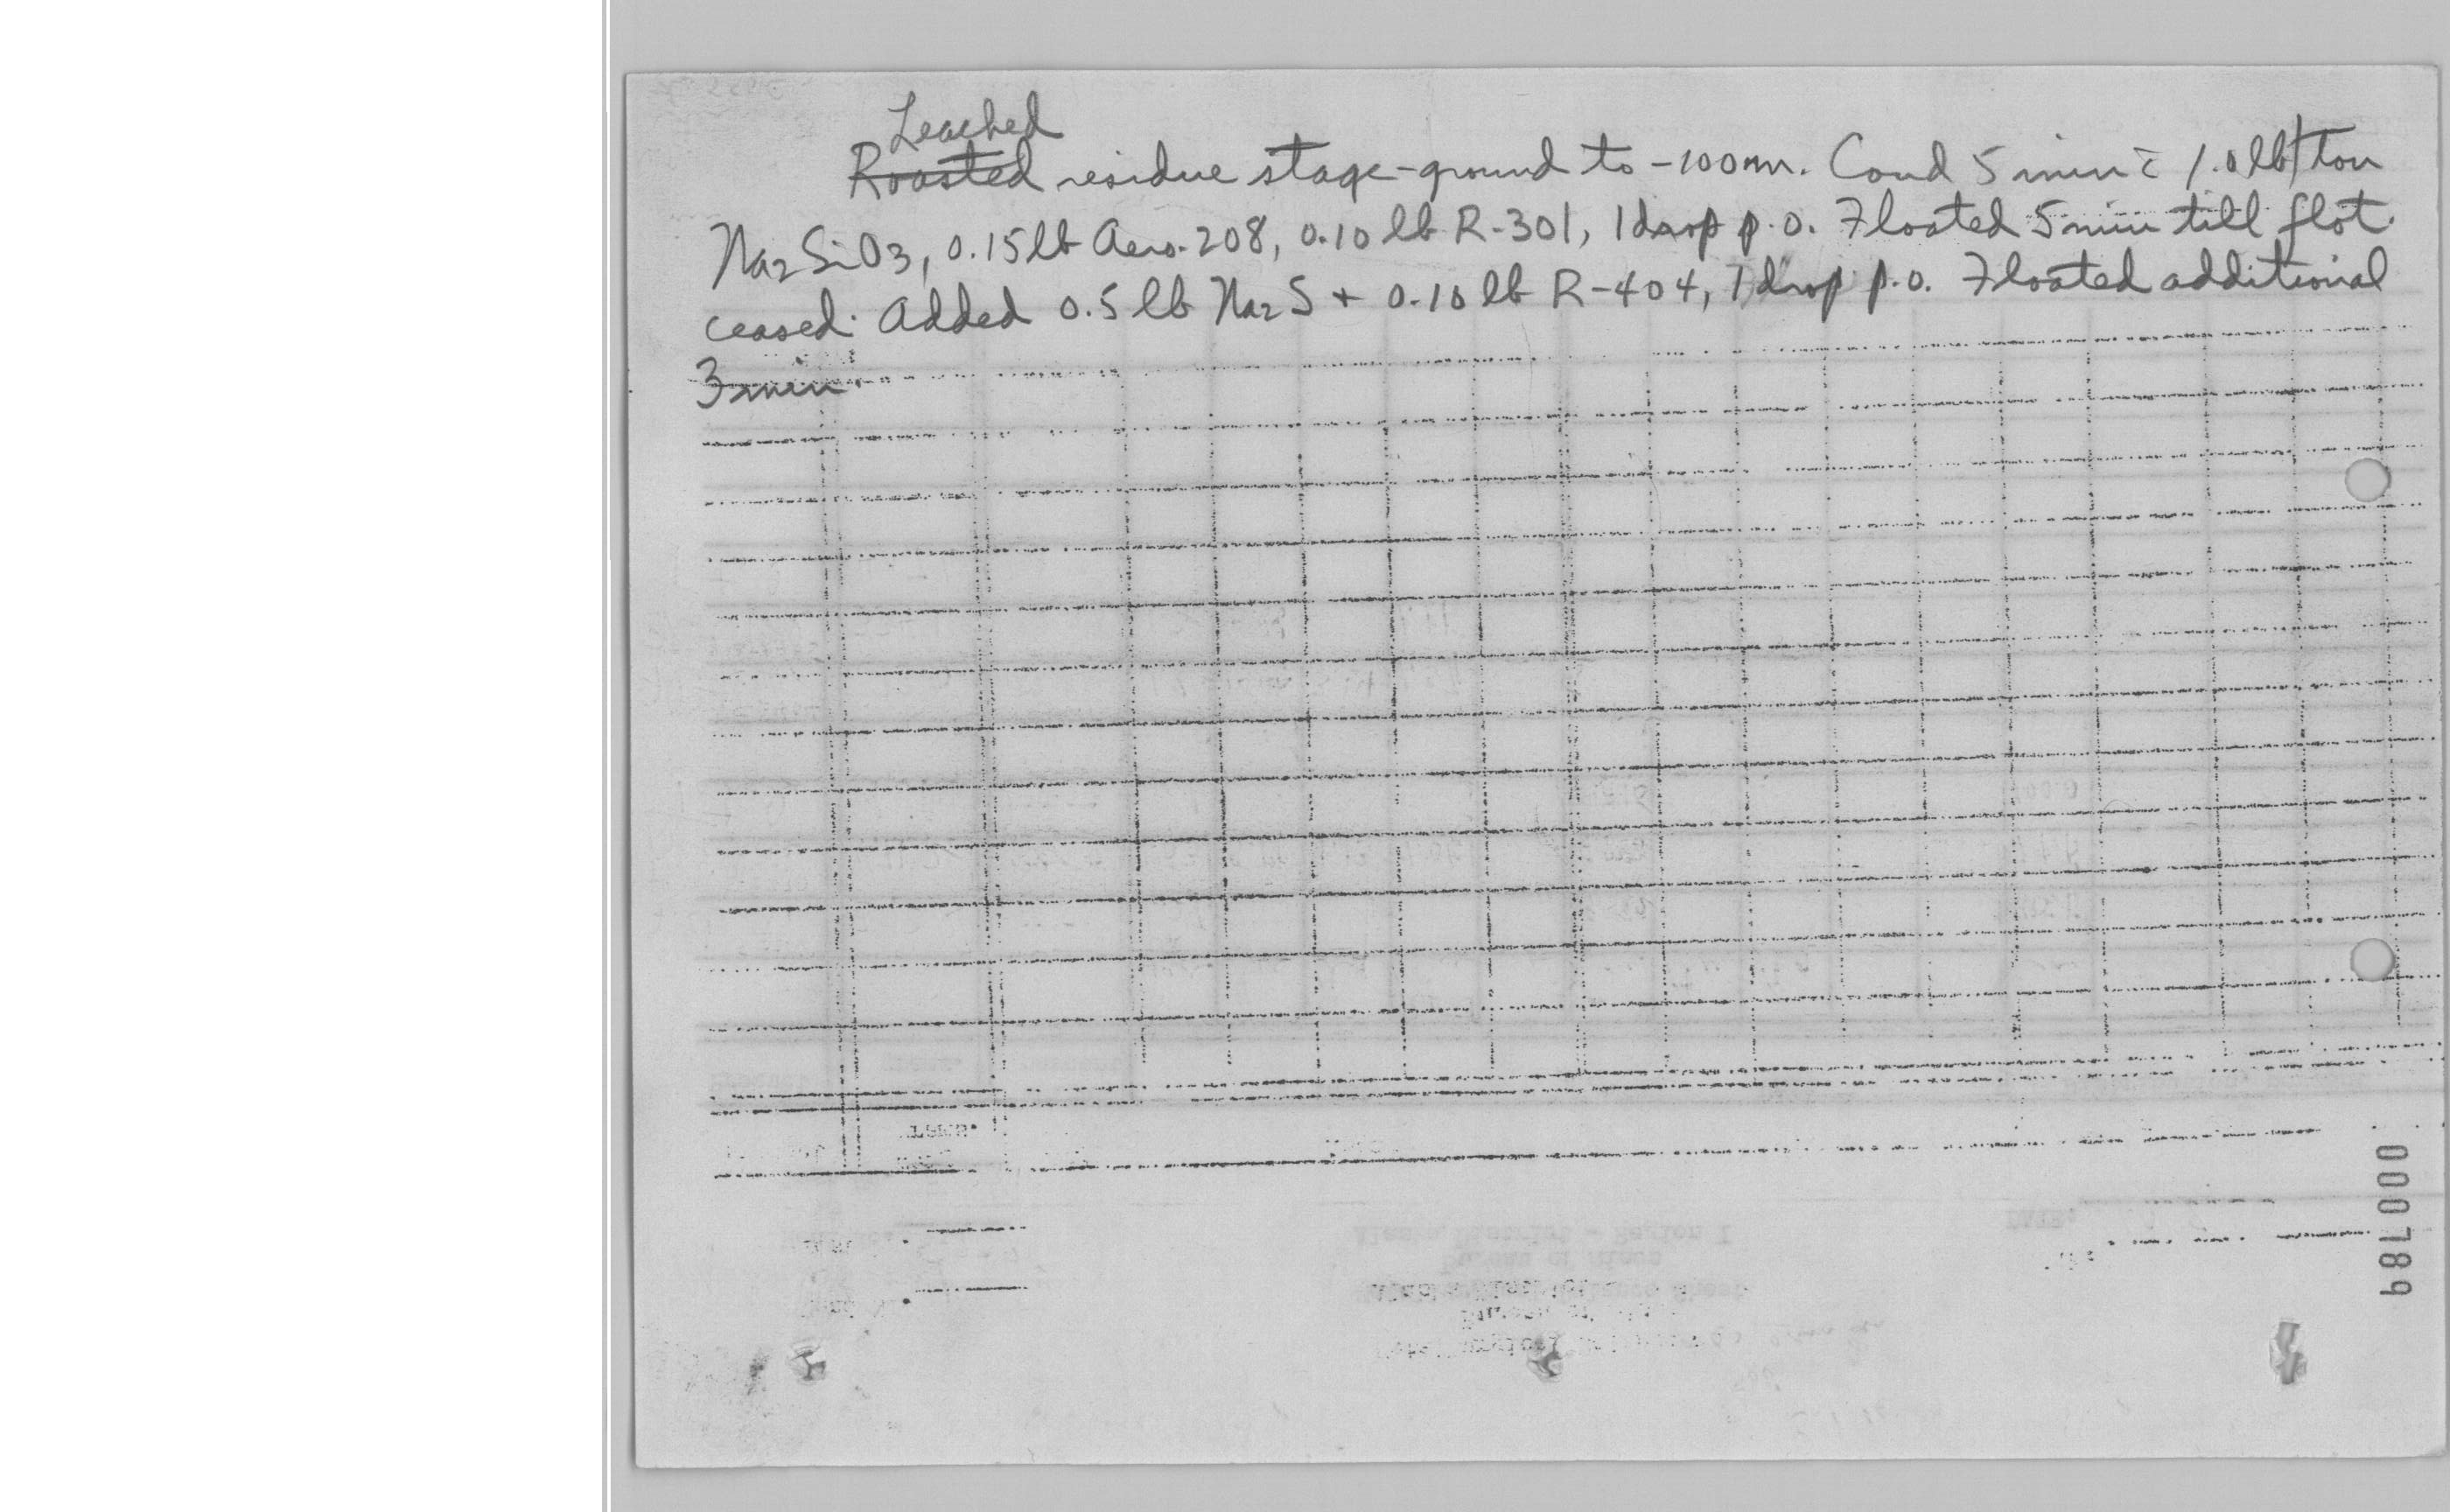 Leached
Roasted residue stage-ground to -100m. Cond 5 min c̄ 1.0 lb/ton
Na2SiO3, 0.15 lb Aero-208, 0.10 lb R-301, 1 drop p.o. Floated 5 min till flot.
ceased. Added 0.5 lb Na2S + 0.10 lb R-404, 1 drop p.o. Floated additional
3 min.
000789